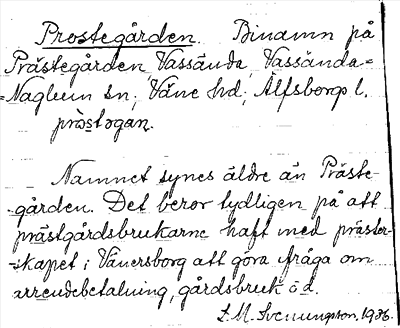 Prostegården. Binamn på
Prästegården, Vassända, Vassända=
=Naglum sn, Väne hd, Älfsborgs l.
pròstogan.
Namnet synes äldre än Präste-
gården. Det beror tydligen på att
prästgårdsbrukarne haft med präster-
skapet i Vänersborg att göra ifråga om
arrendebetalning, gårdsbruk o d.
F. M. Svenungson, 1936.